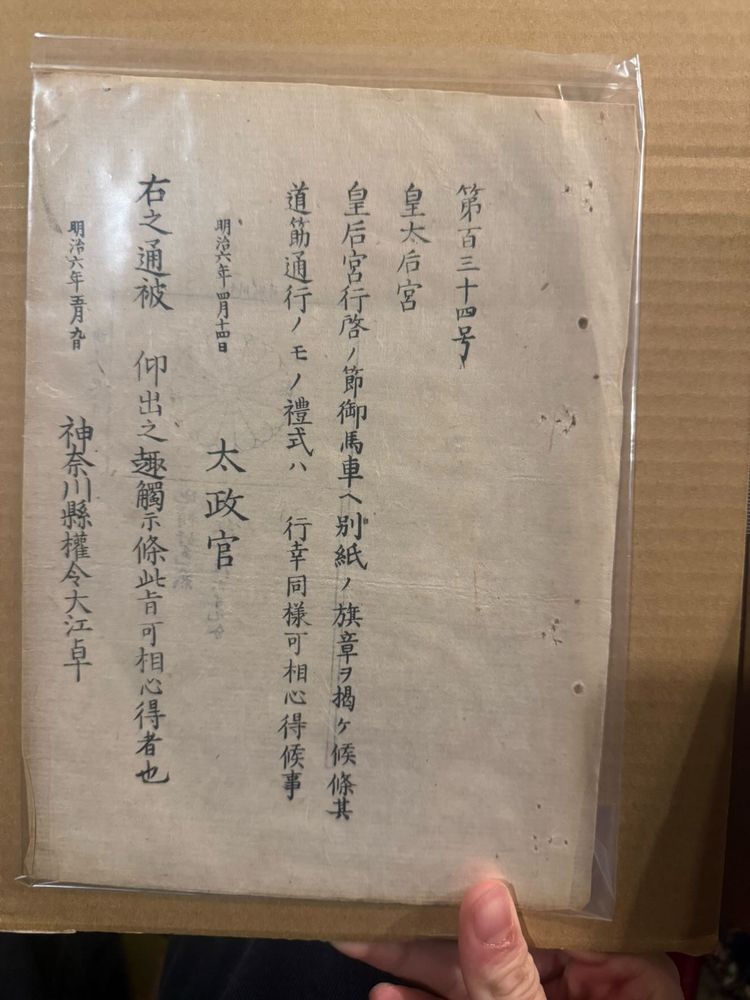 第百三十四号
皇太后宮
皇后宮行啓ノ節御馬車ヘ別紙ノ旗章ヲ掲ケ候條其
道筋通行ノモノ禮式ハ 行幸同様可相心得候事
明治六年四月十四日
太政官
右之通被 仰出之趣觸示條此旨可相心得者也
明治六年五月九日
神奈川縣權令大江卓